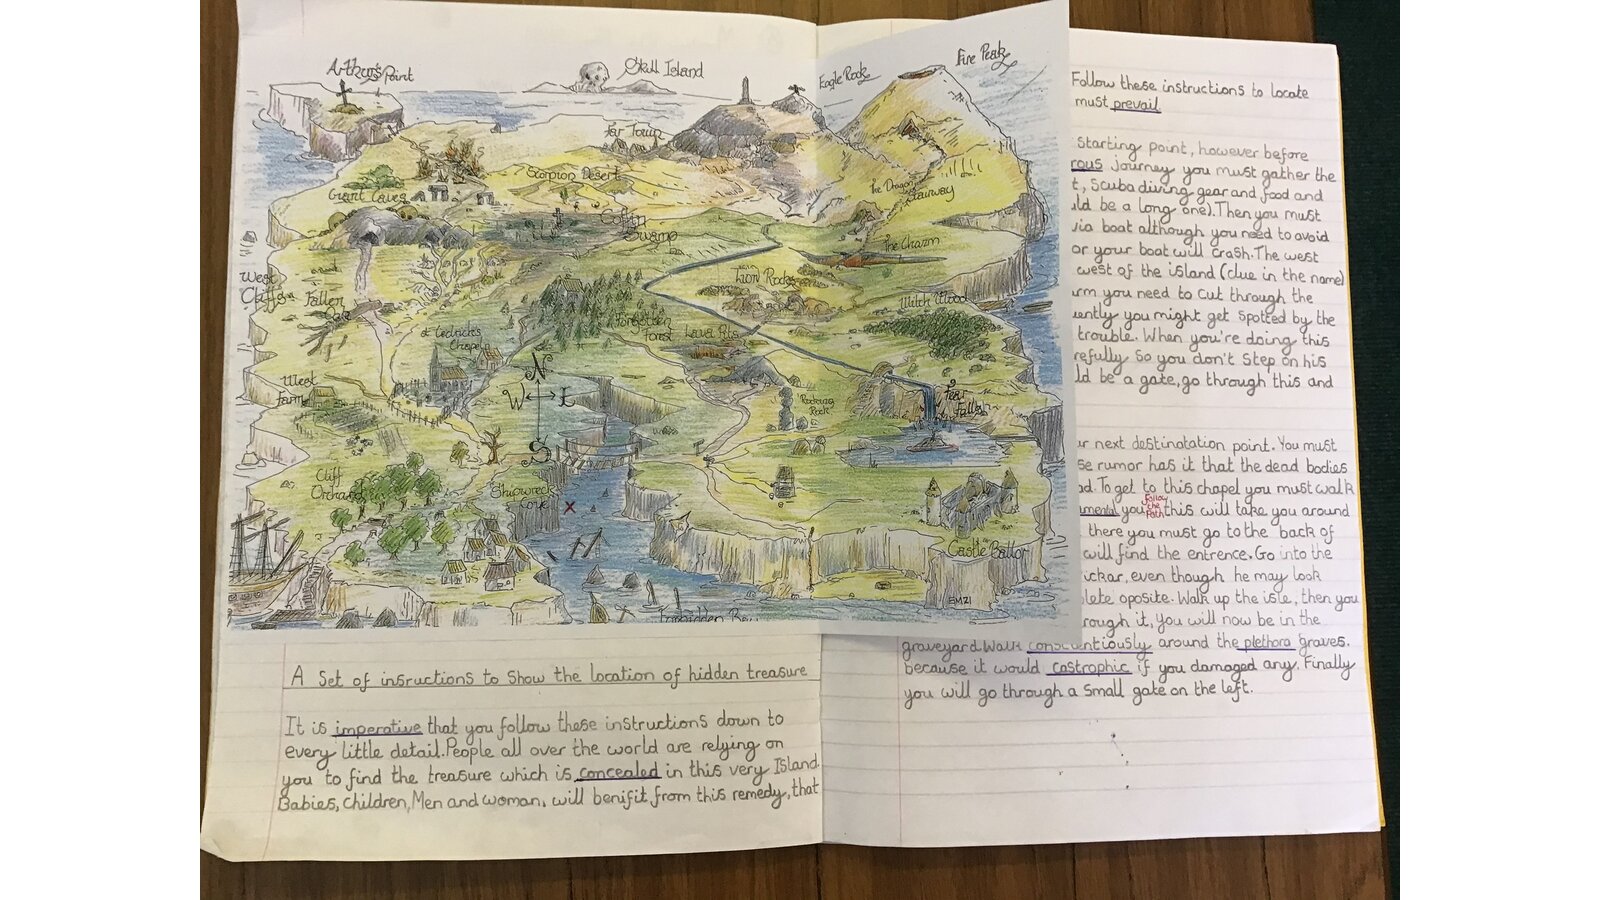 Arthur's Point
Skull Island
Eagle Rock
Fire Peak
Far Town
Scorpion Desert
Giant Caves
The Dragon
Stairway
Coffin
Swamp
The Charm
West
Cliffs
Fallen
Oak
Lion Rocks
Witch Wood
St Cedric's
Chapel
Forgotten
Forest
Lava Pits
N
W E
S
West
Farm
Rocking
Rock
Fear
Falls
Cliff
Orchard
Shipwreck
Cove
x
Castle Ballor
SMZ1
Forbidden Bay
A Set of insructions to Show the location of hidden treasure
It is imperative that you follow these instructions down to
every little detail.People all over the world are relying on
you to find the treasure which is concealed in this very Island.
Babies, children, Men and woman, will benifit from this remedy, that
Follow these instructions to locate
must prevail
Starting point, however before
rous journey you must gather the
t, Scuba diving gear and food and
ld be a long one). Then you must
via boat although you need to avoid
or your boat will crash. The west
west of the island (clue in the name)
arm you need to cut through the
uently you might get spotted by the
trouble. When you're doing this
refully So you don't Step on his
ld be a gate, go through this and
ur next destinatation point. You must
se rumor has it that the dead bodies
ad. To get to this chapel you must walk
amental you follow the Path this will take you around
there you must go to the back of
will find the entrence. Go into the
ickar, even though he may look
plete oposite. Walk up the isle, then you
rough it, you will now be in the
graveyard. Walk conscientiously around the plethora graves.
because it would castrophic if you damaged any. Finally
you will go through a Small gate on the left.